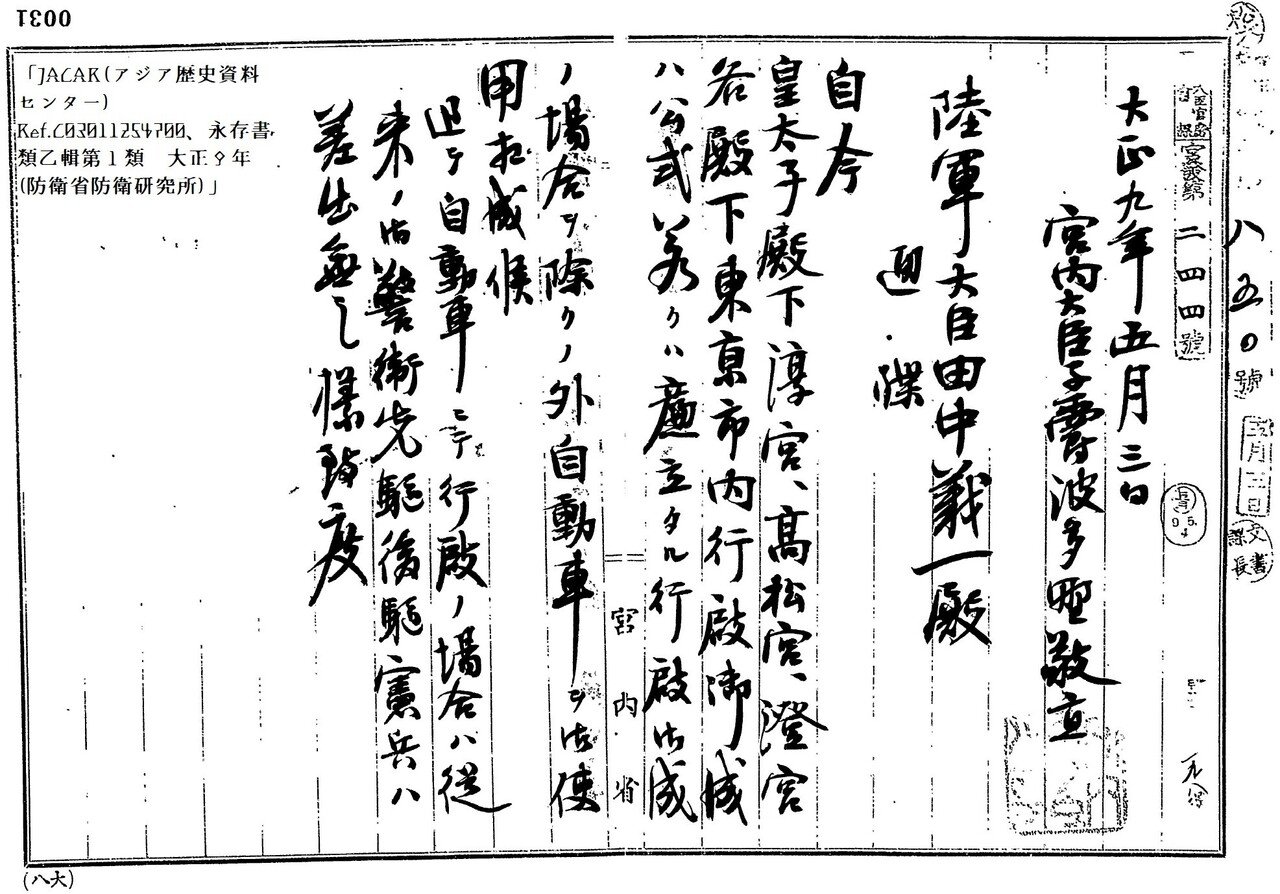 0031
「JACAR(アジア歴史資料
センター)
Ref.C03011254700、永存書
類乙輯第1類　大正9年
(防衛省防衛研究所)」
八五〇號
五月三日
文書課長
官房
宮發第二四四號
大正九年五月三日
宮内大臣子爵波多野敬直
陸軍大臣田中義一殿
通牒
自今
皇太子殿下淳宮、高松宮、澄宮
各殿下東京市内行啟御成
ハ公式若クハ廉立タル行啟御成
ノ場合ヲ除クノ外自動車ヲ御使
用相成候
追テ自動車ニテ行啟ノ場合ハ從
来ノ御警衛先駆後駆憲兵ハ
差出無之様致度
宮内省
(八大)